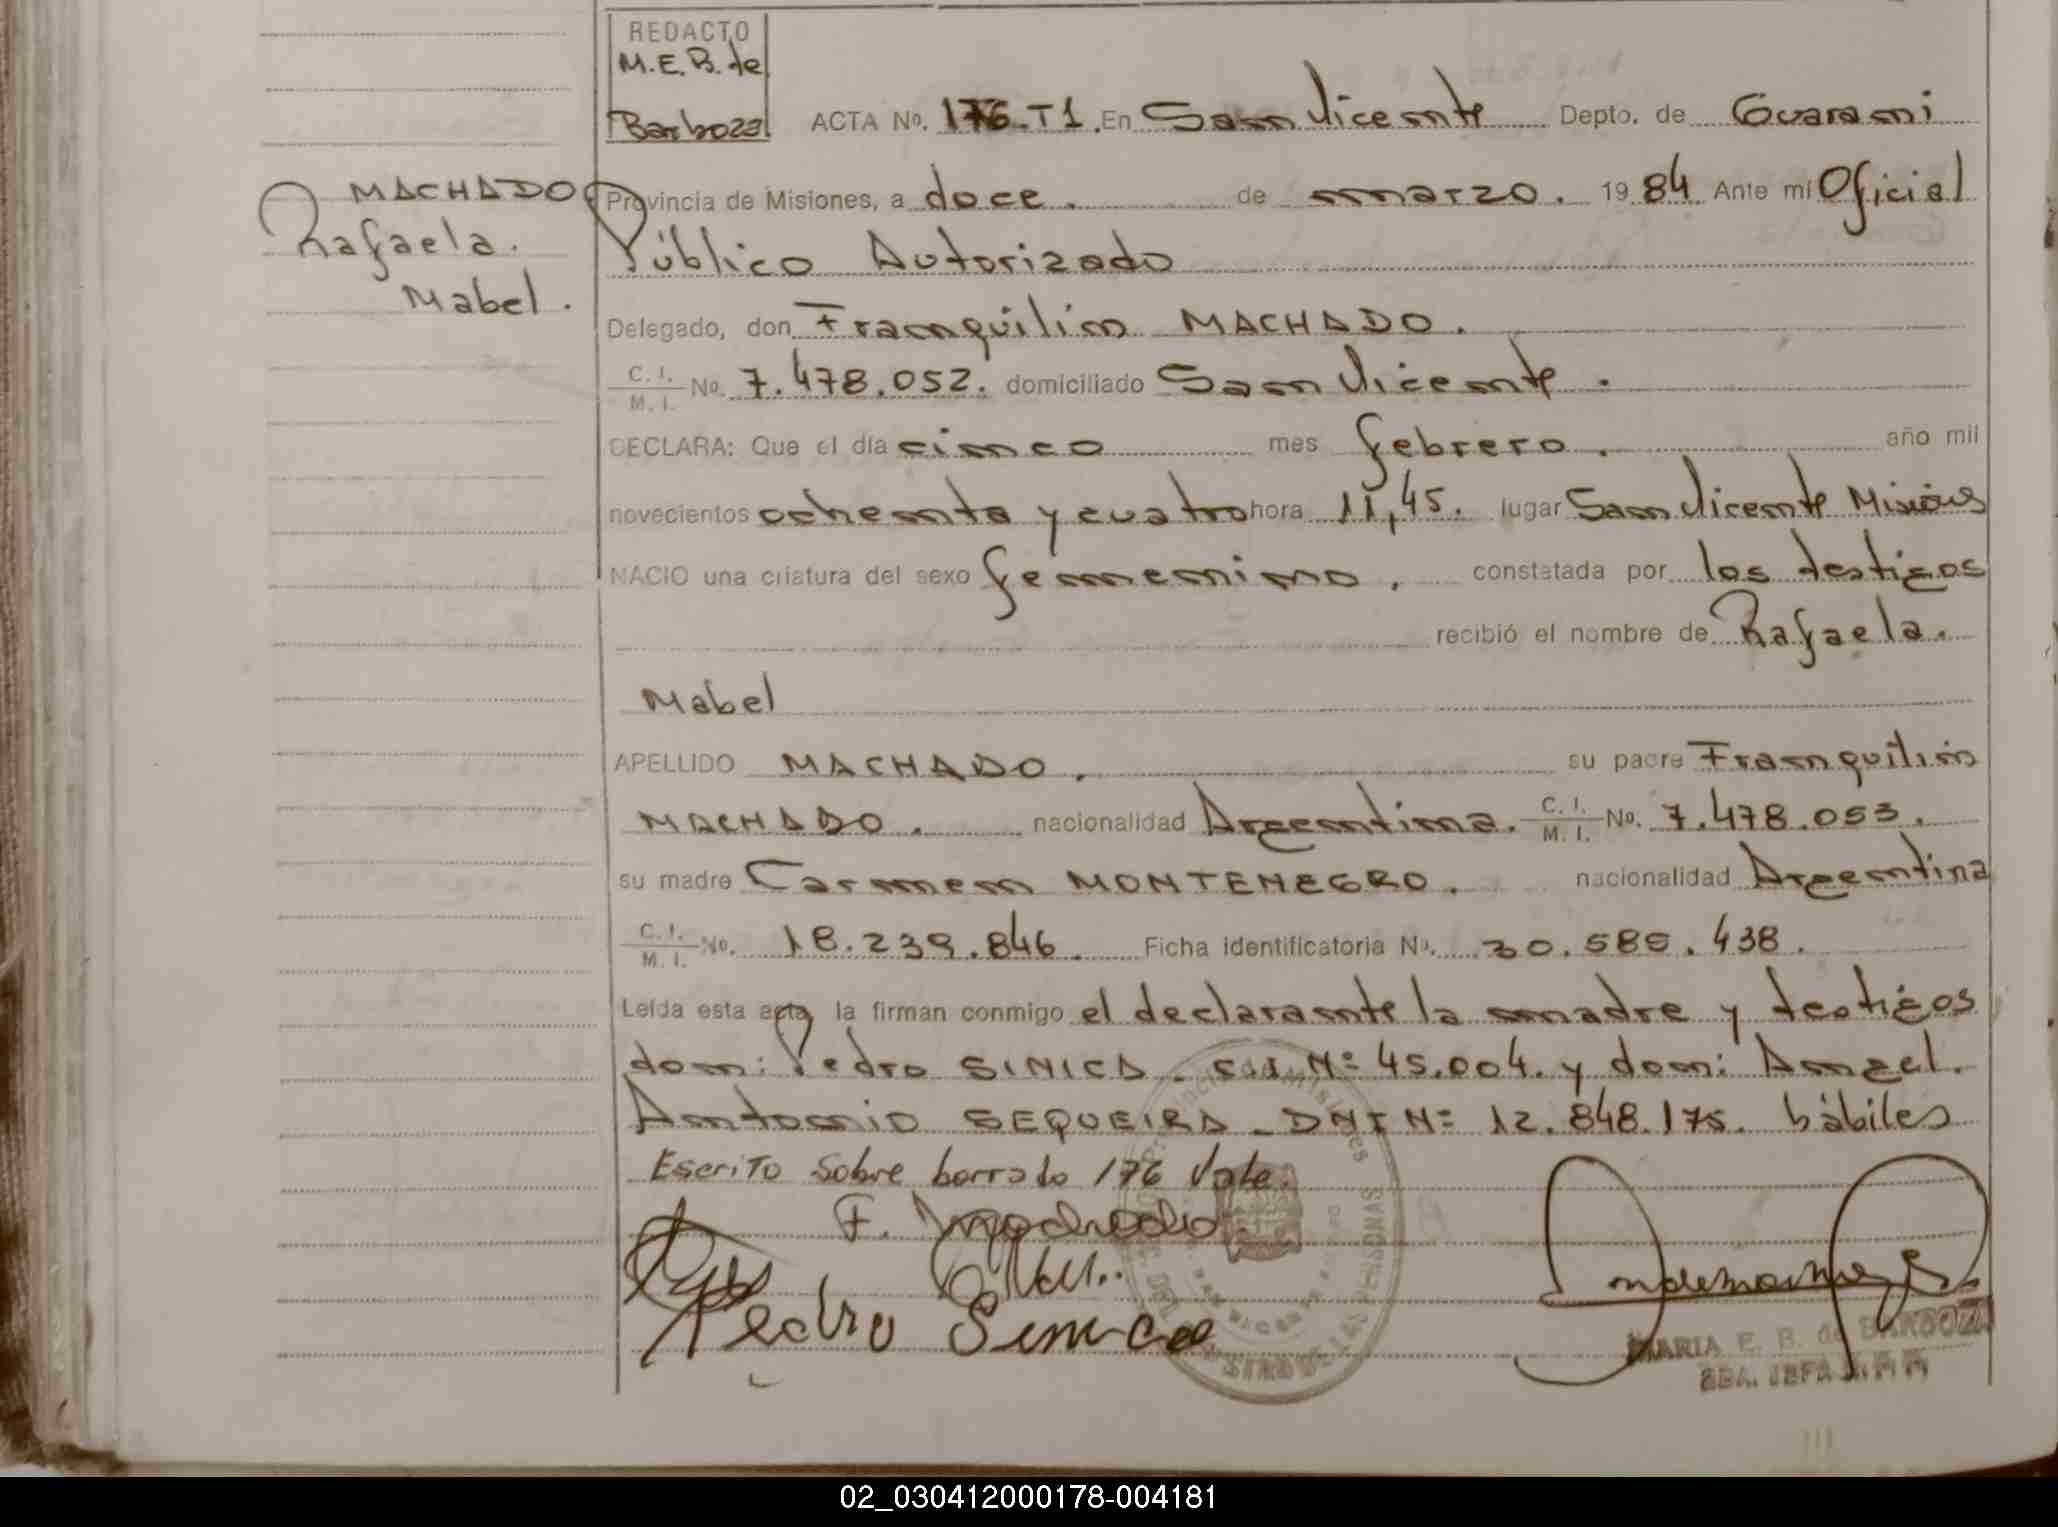 REDACTO
M.E.B. de
Barboza
ACTA No. 176-T1. En San Vicente Depto. de Guarani
MACHADO
Rafaela.
Mabel.
Provincia de Misiones, a doce. de marzo. 1984 Ante mi Oficial
Público Autorizado
Delegado, don Franquilin MACHADO.
C. I. / M. I. No. 7.478.052. domiciliado San Vicente.
DECLARA: Que el día cinco mes febrero. año mil
novecientos ochenta y cuatro hora 11,45. lugar San Vicente Misiones
NACIO una criatura del sexo femenino. constatada por los testigos
recibió el nombre de Rafaela.
Mabel
APELLIDO MACHADO. su padre Franquilin
MACHADO. nacionalidad Argentina. C. I. / M. I. No. 7.478.053.
su madre Carmen MONTENEGRO. nacionalidad Argentina
C. I. / M. I. No. 18.239.846. Ficha identificatoria No. 30.586.438.
Leída esta acta, la firman conmigo el declarante la madre y testigos
don: Pedro SINICA. Nº 45.004. y don: Angel.
Antonio SEQUEIRA - DNI Nº 12.848.175. hábiles
Escrito sobre borrado 176 Vale.
F. Machado
Pedro Sinica
MARIA E. B. de BARBOZA
02_030412000178-004181